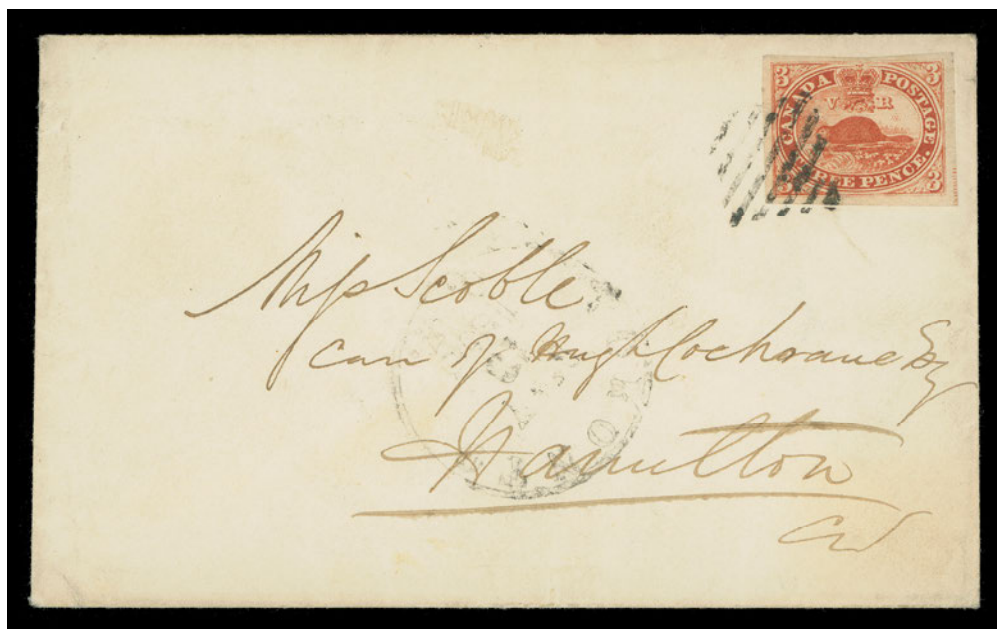 3 CANADA POSTAGE 3
V R
THREE PENCE.
3 3
Miss Scoble
care of Hugh Cochrane Esq
Hamilton
CW